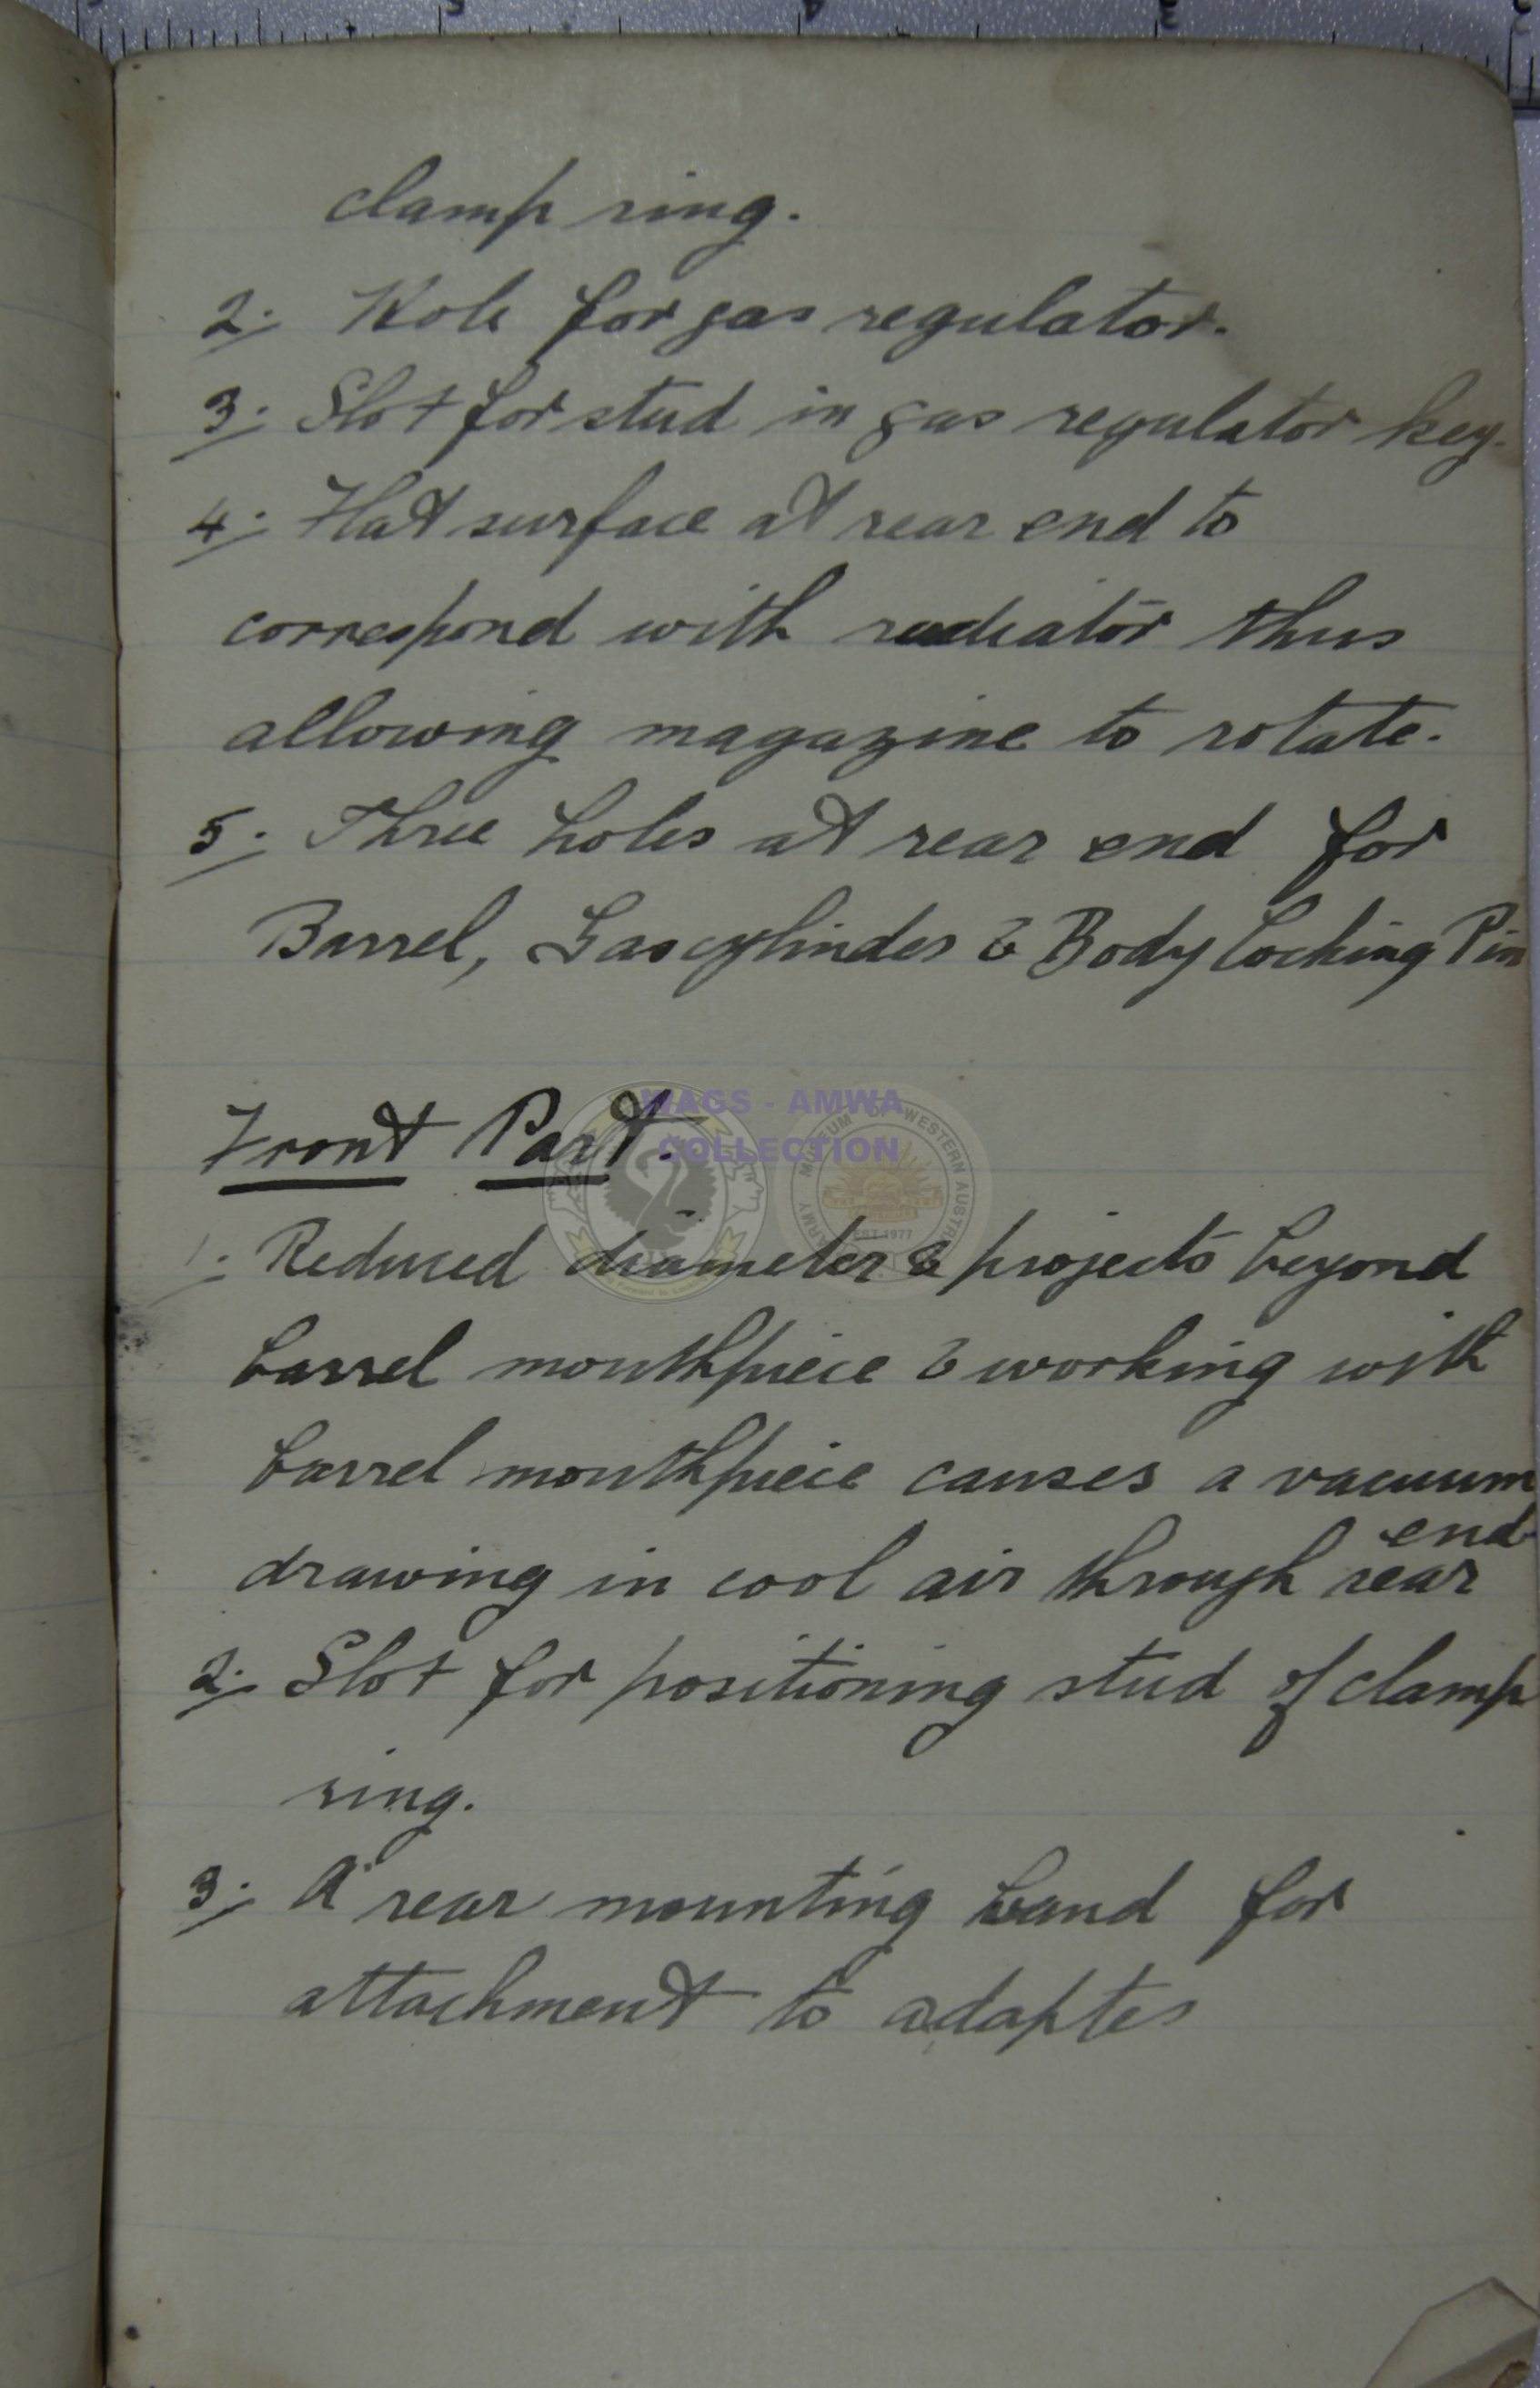 clamp ring.
2. Hole for gas regulator.
3. Slot for stud in gas regulator key.
4. Flat surface at rear end to
correspond with radiator thus
allowing magazine to rotate.
5. Three holes at rear end for
Barrel, Gas cylinder & Body Locking Pin
Front Part.
1. Reduced diameter & projects beyond
barrel mouthpiece & working with
barrel mouthpiece causes a vacuum
end
drawing in cool air through rear
2. Slot for positioning stud of clamp
ring.
3. A rear mounting band for
attachment to adapter
WAGS - AMWA
COLLECTION
MUSEUM OF WESTERN AUSTRALIA
ARMY
EST 1977